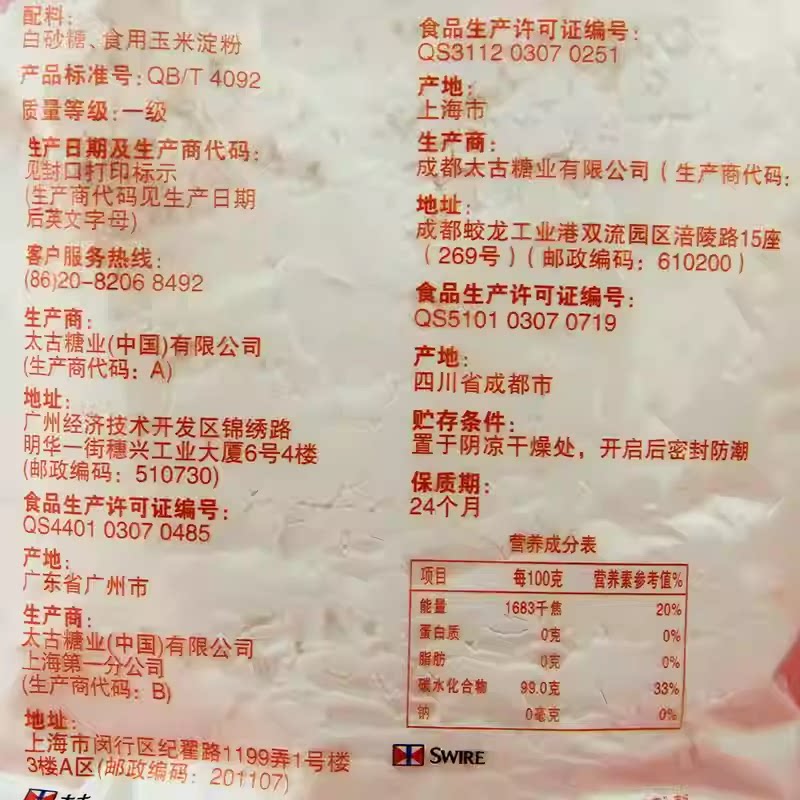 配料:
白砂糖、食用玉米淀粉
产品标准号:QB/T 4092
质量等级:一级
生产日期及生产商代码:
见封口打印标示
(生产商代码见生产日期
后英文字母)
客户服务热线:
(86)20-8206 8492
生产商:
太古糖业(中国)有限公司
(生产商代码: A)
地址:
广州经济技术开发区锦绣路
明华一街穗兴工业大厦6号4楼
(邮政编码: 510730)
食品生产许可证编号:
QS4401 0307 0485
产地:
广东省广州市
生产商:
太古糖业(中国)有限公司
上海第一分公司
(生产商代码: B)
地址:
上海市闵行区纪翟路1199弄1号楼
3楼A区(邮政编码: 201107)
食品生产许可证编号:
QS3112 0307 0251
产地:
上海市
生产商:
成都太古糖业有限公司(生产商代码:
地址:
成都蛟龙工业港双流园区涪陵路15座
(269号)(邮政编码: 610200)
食品生产许可证编号:
QS5101 0307 0719
产地:
四川省成都市
贮存条件:
置于阴凉干燥处, 开启后密封防潮
保质期:
24个月
营养成分表
项目 每100克 营养素参考值%
能量 1683千焦 20%
蛋白质 0克 0%
脂肪 0克 0%
碳水化合物 99.0克 33%
钠 0毫克 0%
SWIRE